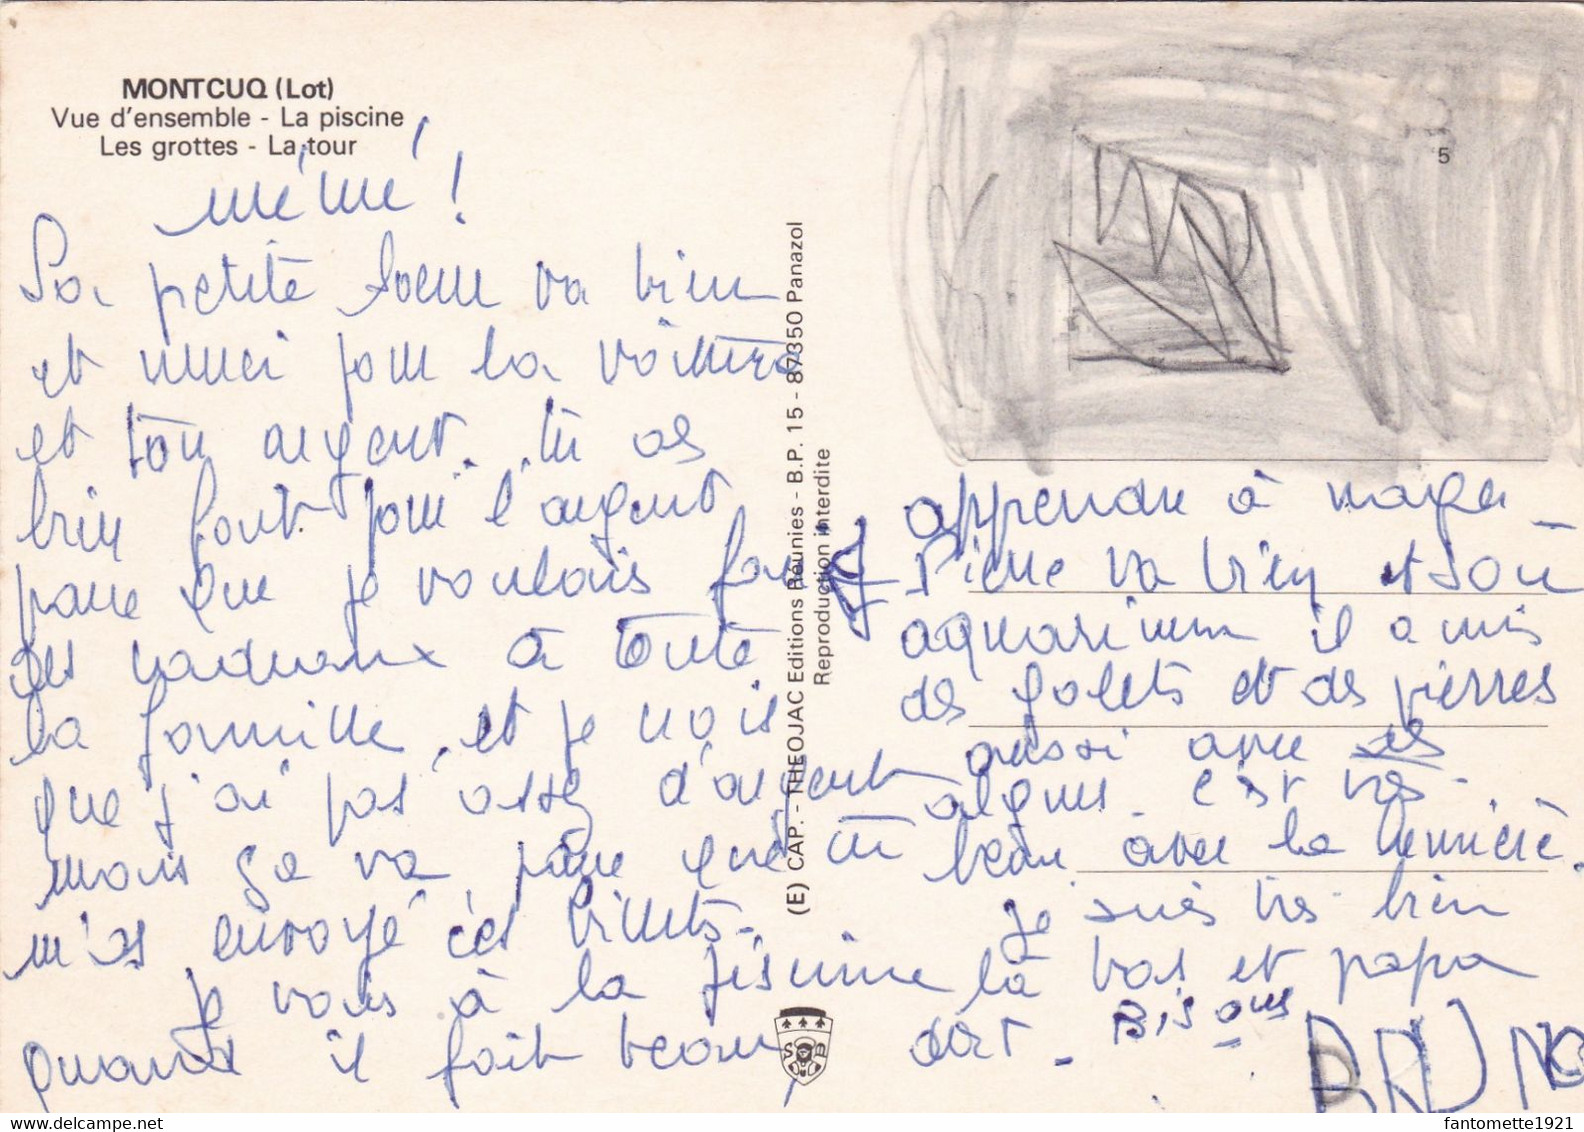 MONTCUQ (Lot)
Vue d'ensemble - La piscine
Les grottes - La tour
mémé !
Sa petite soeur va bien
et merci pour la voiture
et ton argent. tu as
bien fait pour l'argent
parce que je voulais faire
des cadeaux à toute
la famille, et je vois
que j'ai pas assez d'argent
mais ça va parce que tu
m'as envoyé ces billets.
je vais à la piscine
quand il fait beau,
(E) CAP. - THEOJAC Editions Réunies - B.P. 15 - 87350 Panazol
Reproduction interdite
S B
5
apprendre à nager
Pierre va bien et son
aquarium il a mis
des galets et des pierres
aussi avec des
algues c'est très
beau avec la lumière.
je suis très bien
là bas et papa
dort - Bisous
BRUNO
www.delcampe.net
fantomette1921